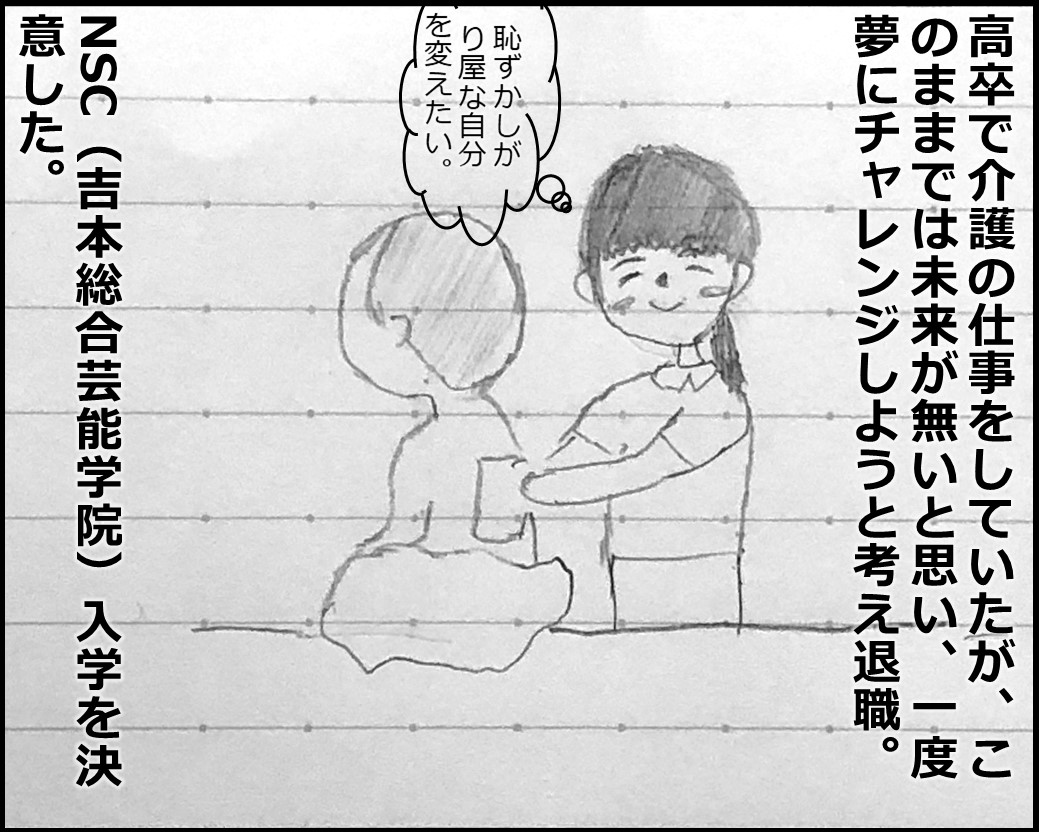 高卒で介護の仕事をしていたが、こ
のままでは未来が無いと思い、一度
夢にチャレンジしようと考え退職。
恥ずかしが
り屋な自分
を変えたい。
NSC（吉本総合芸能学院）入学を決
意した。